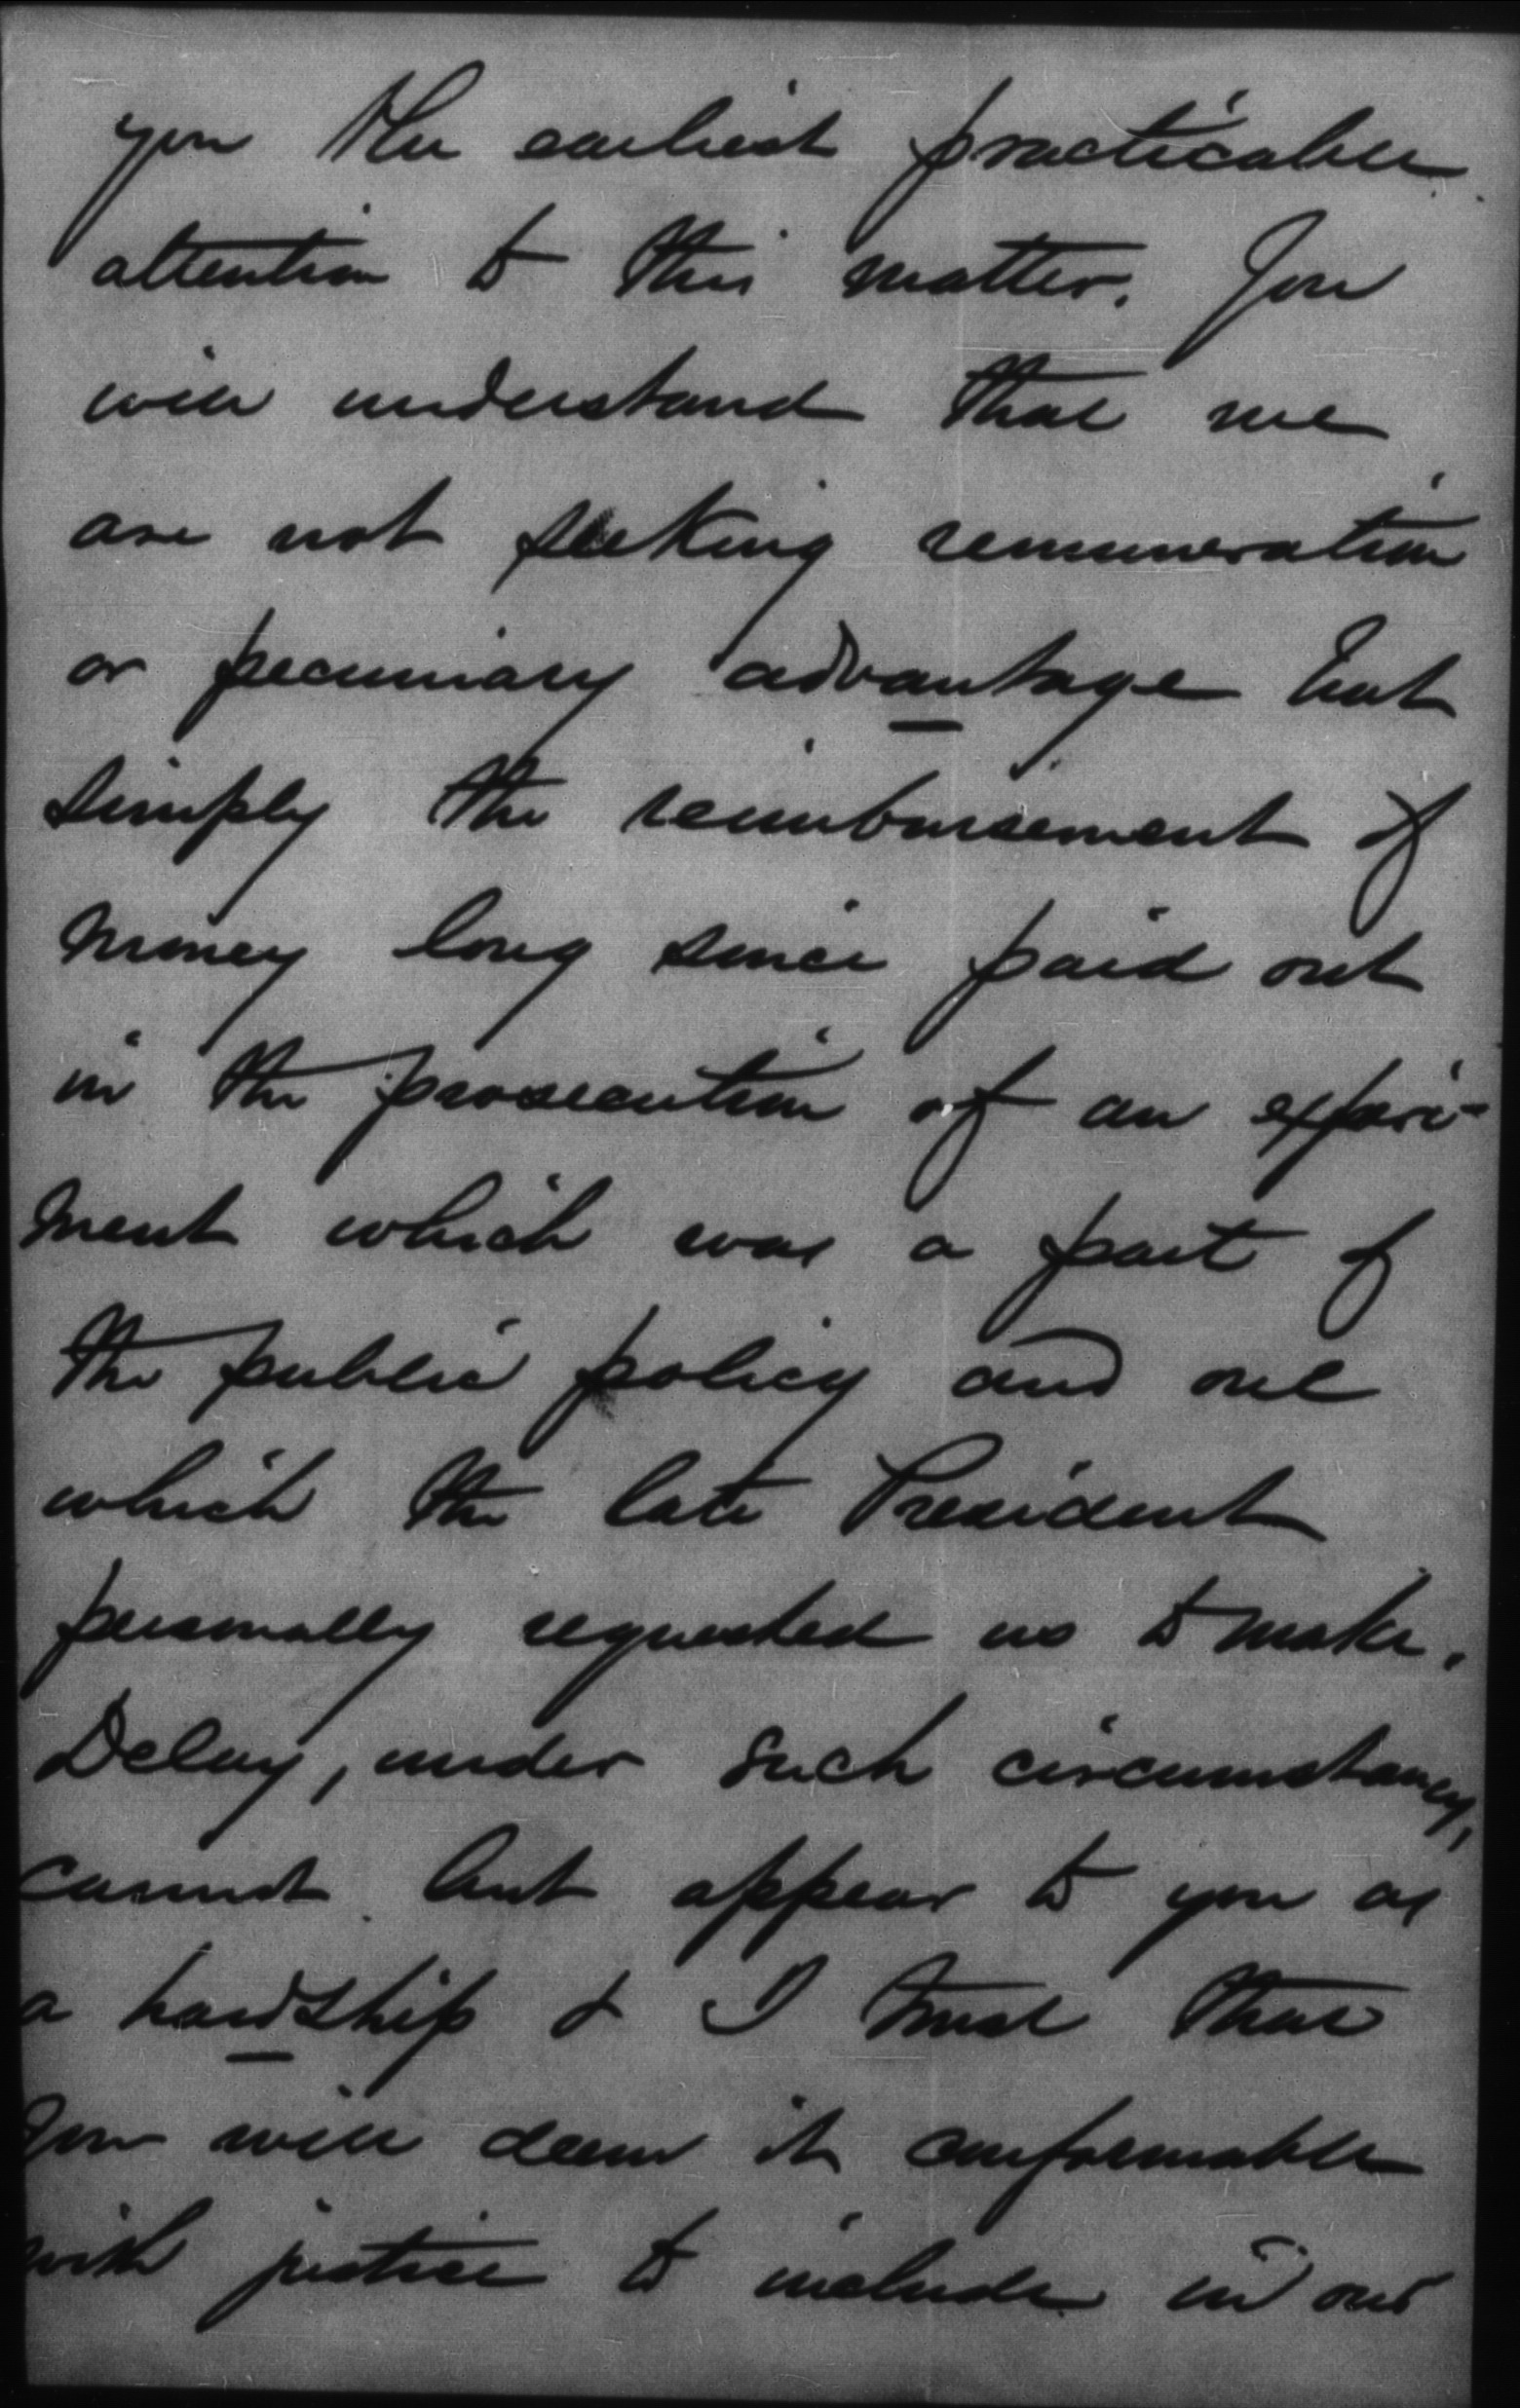 you the earliest practicable
attention to this matter. You
will understand that we
are not seeking remuneration
or pecuniary advantage but
simply the reimbursement of
money long since paid out
in the prosecution of an experi-
ment which was a part of
the public policy and one
which the late President
personally requested us to make.
Delay, under such circumstances,
cannot but appear to you as
a hardship & I trust that
you will deem it conformable
with justice to include in our